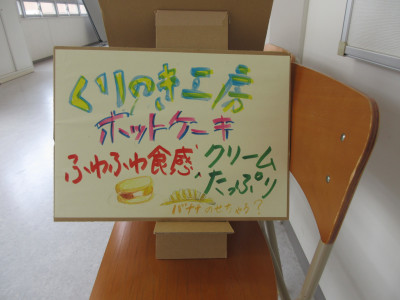 くりのき工房
ホットケーキ
ふわふわ食感
クリーム
たっぷり
バナナのせちゃう?